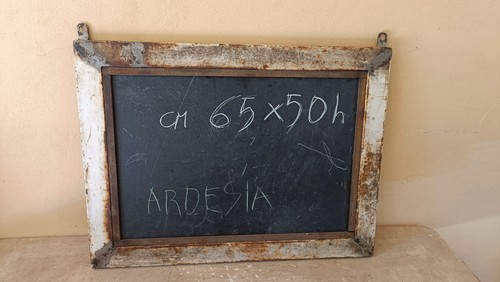 cm 65x50h
ARDESIA